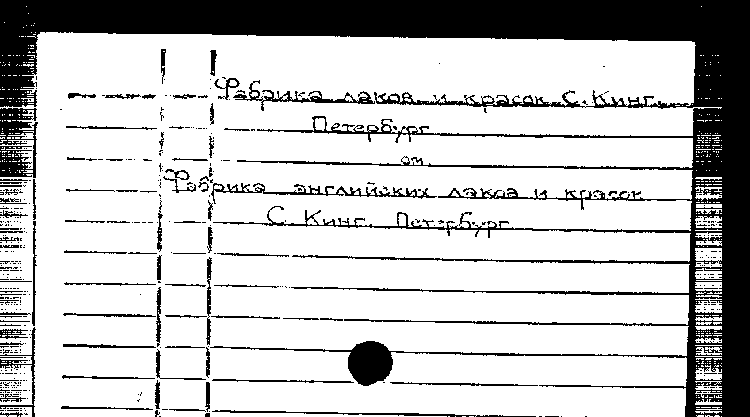 Фабрика лаков и красок С. Кинг.
Петербург
см.
Фабрика английских лаков и красок
С. Кинг. Петербург